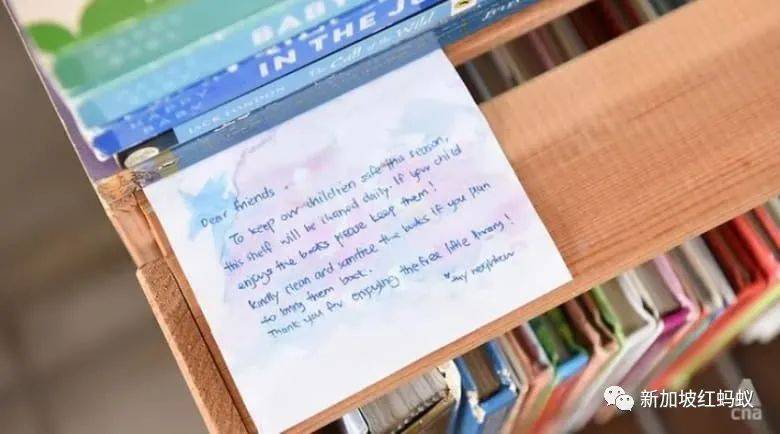 BABY
IN THE JU
BABY
JACK LONDON The Call of the Wild
Dear friends,
To keep our children safe this season,
this shelf will be cleaned daily. If your child
enjoys the books please keep them!
Kindly clean and sanitize the books if you plan
to bring them back.
Thank you for enjoying the free little library!
♥ my neighbour
新加坡红蚂蚁
cna